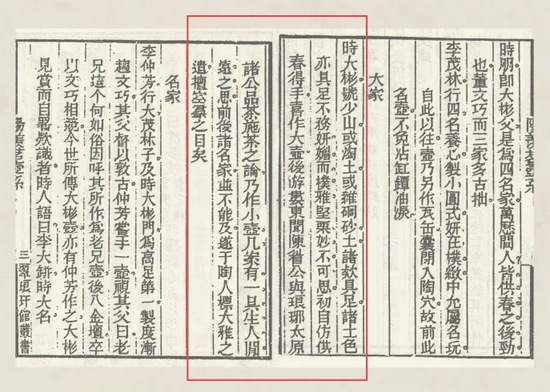 時朋即大彬父是為四名家萬曆間人皆供春之後勁
也董文巧而三家多古拙
李茂林行四名養心製小圓式妍在樸緻中允屬名玩
自此以往壺乃另作瓦缶囊閉入陶穴故前此
名壺不免沾缸罈油淚
大家
時大彬號少山或淘土或雜碙砂土諸款具足諸土色
亦具足不務妍媚而樸雅堅栗妙不可思初自仿供
春得手喜作大壺後游婁東聞陳眉公與琅琊太原
諸公品茶施茶之論乃作小壺几案有一具生人閒
遠之思前後諸名家並不能及遂于陶人標大雅之
遺擅空羣之目矣
名家
李仲芳行大茂林子及時大彬門為高足第一製度漸
趨文巧其父督以敦古仲芳嘗手一壺視其父曰老
兄這個何如俗因呼其所作為老兄壺後入金壇卒
以文巧相競今世所傳大彬壺亦有仲芳作之大彬
見賞而自署款識者時人語曰李大缾時大名
三 翠琅玕館叢書